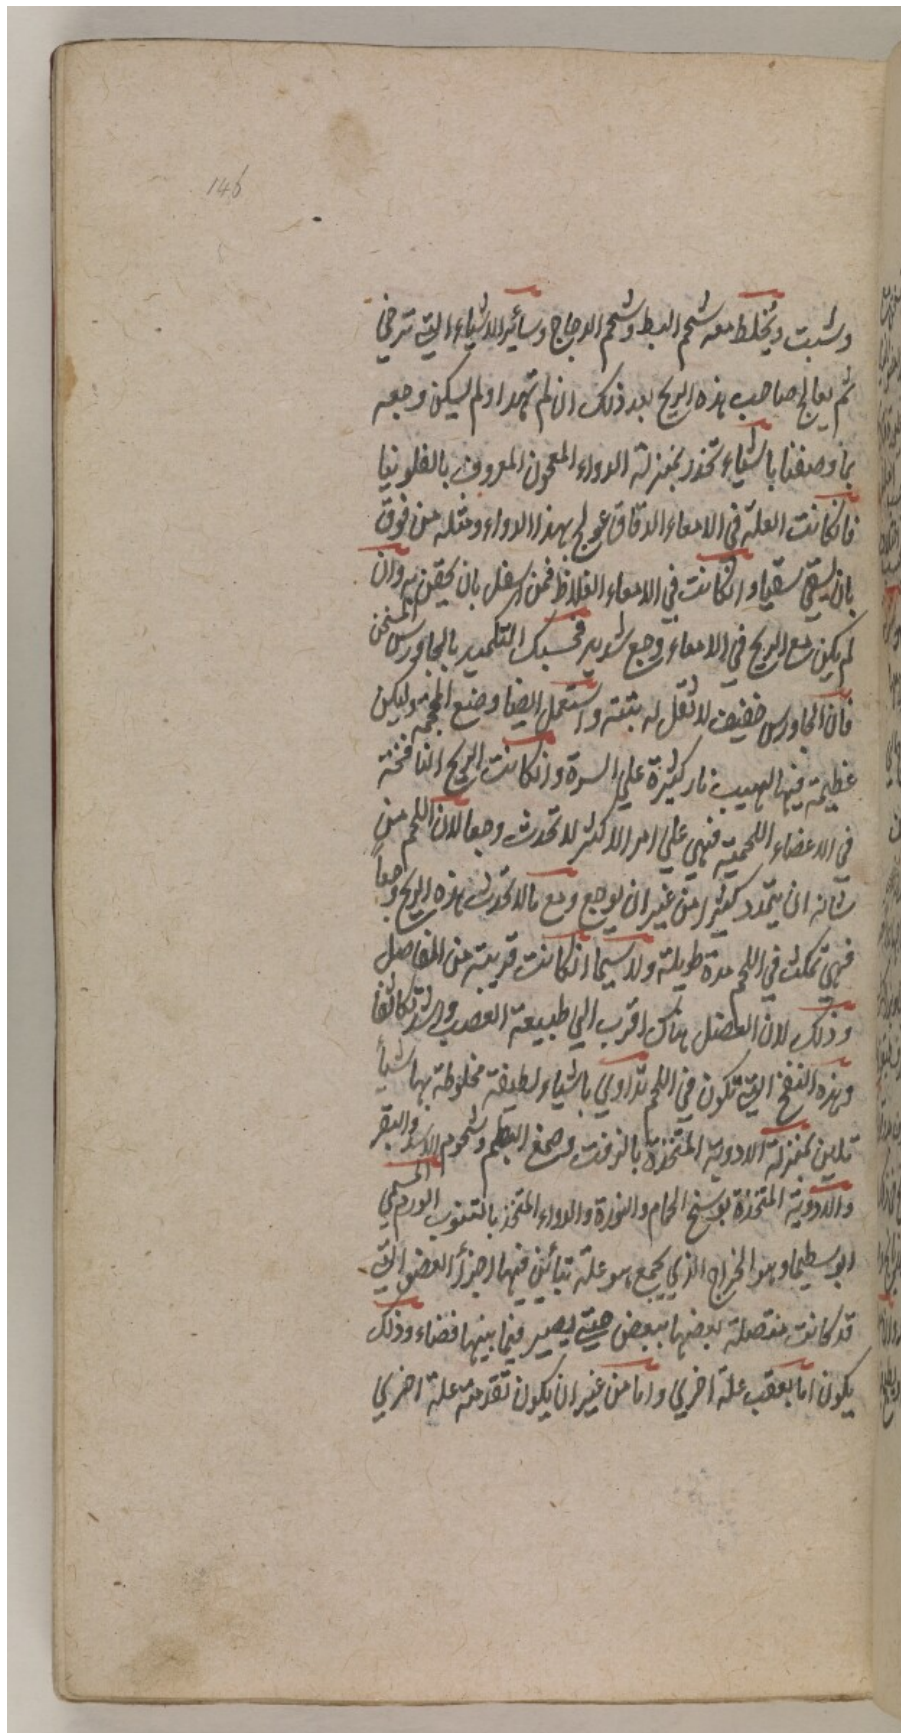 146
وشبت ويُخلط معه شحم البط وشحم الدجاج وسائر الاشياء التي ترخي
ثم يعالج صاحب هذه الريح بعد ذلك ان لم تهدا ولم يسكن وجعه
بما وصفنا باشياء تخدر بمنزلة الدواء المعجون المعروف بالفلونيا
فانكانت العلة في الامعاء الدقاق عولج بهذا الدواء ومثله من فوق
بان يسقي سقيا وانكانت في الامعاء الغلاظ فمن اسفل بان يحقن به وان
لم يكن مع الريح في الامعاء وجع شديد فحسبك التكميد بالجاورس المسخن
فان الجاورس خفيف لا ثقل له بتته واستعمل ايضا وضع المحجمة وليكن
عظيمة فيها لهيب نار كثيرة علي السرة وانكانت الريح النافخة
في الاعضاء اللحمية فهي علي امر الاكثر لا تحدث وجعا لان اللحم من
شانه ان يتمدد كثيرا من غير ان يوجع ومع ما لا تحدث هذه الريح وجعاً
فهي تمكث في اللحم مدة طويلة ولا سيما انكانت قريبة من المفاصل
وذلك لان العضل هناك اقرب الي طبيعة العصب واشد تكاثفا
وهذه النفخ التي تكون في اللحم تداوي باشياء لطيفة مخلوطة بها اشيأ
تلين بمنزلة الادوية المتخذة بالزفت وصمغ البطم وشحوم الاسد والبقر
والادوية المتخذة بوسخ الحمام والنورة والدواء المتخذ بالتنوب الورم المسمي
ابوسطيما وهو الخراج الذي يجمع هو علة تبائن فيها اجزأ العضو التي
قد كانت متصلة بعضها ببعض حتي يصير فيما بينها فضاء وذلك
يكون اما بعقب علة اخري واما من غير ان يكون تقدمته علة اخري